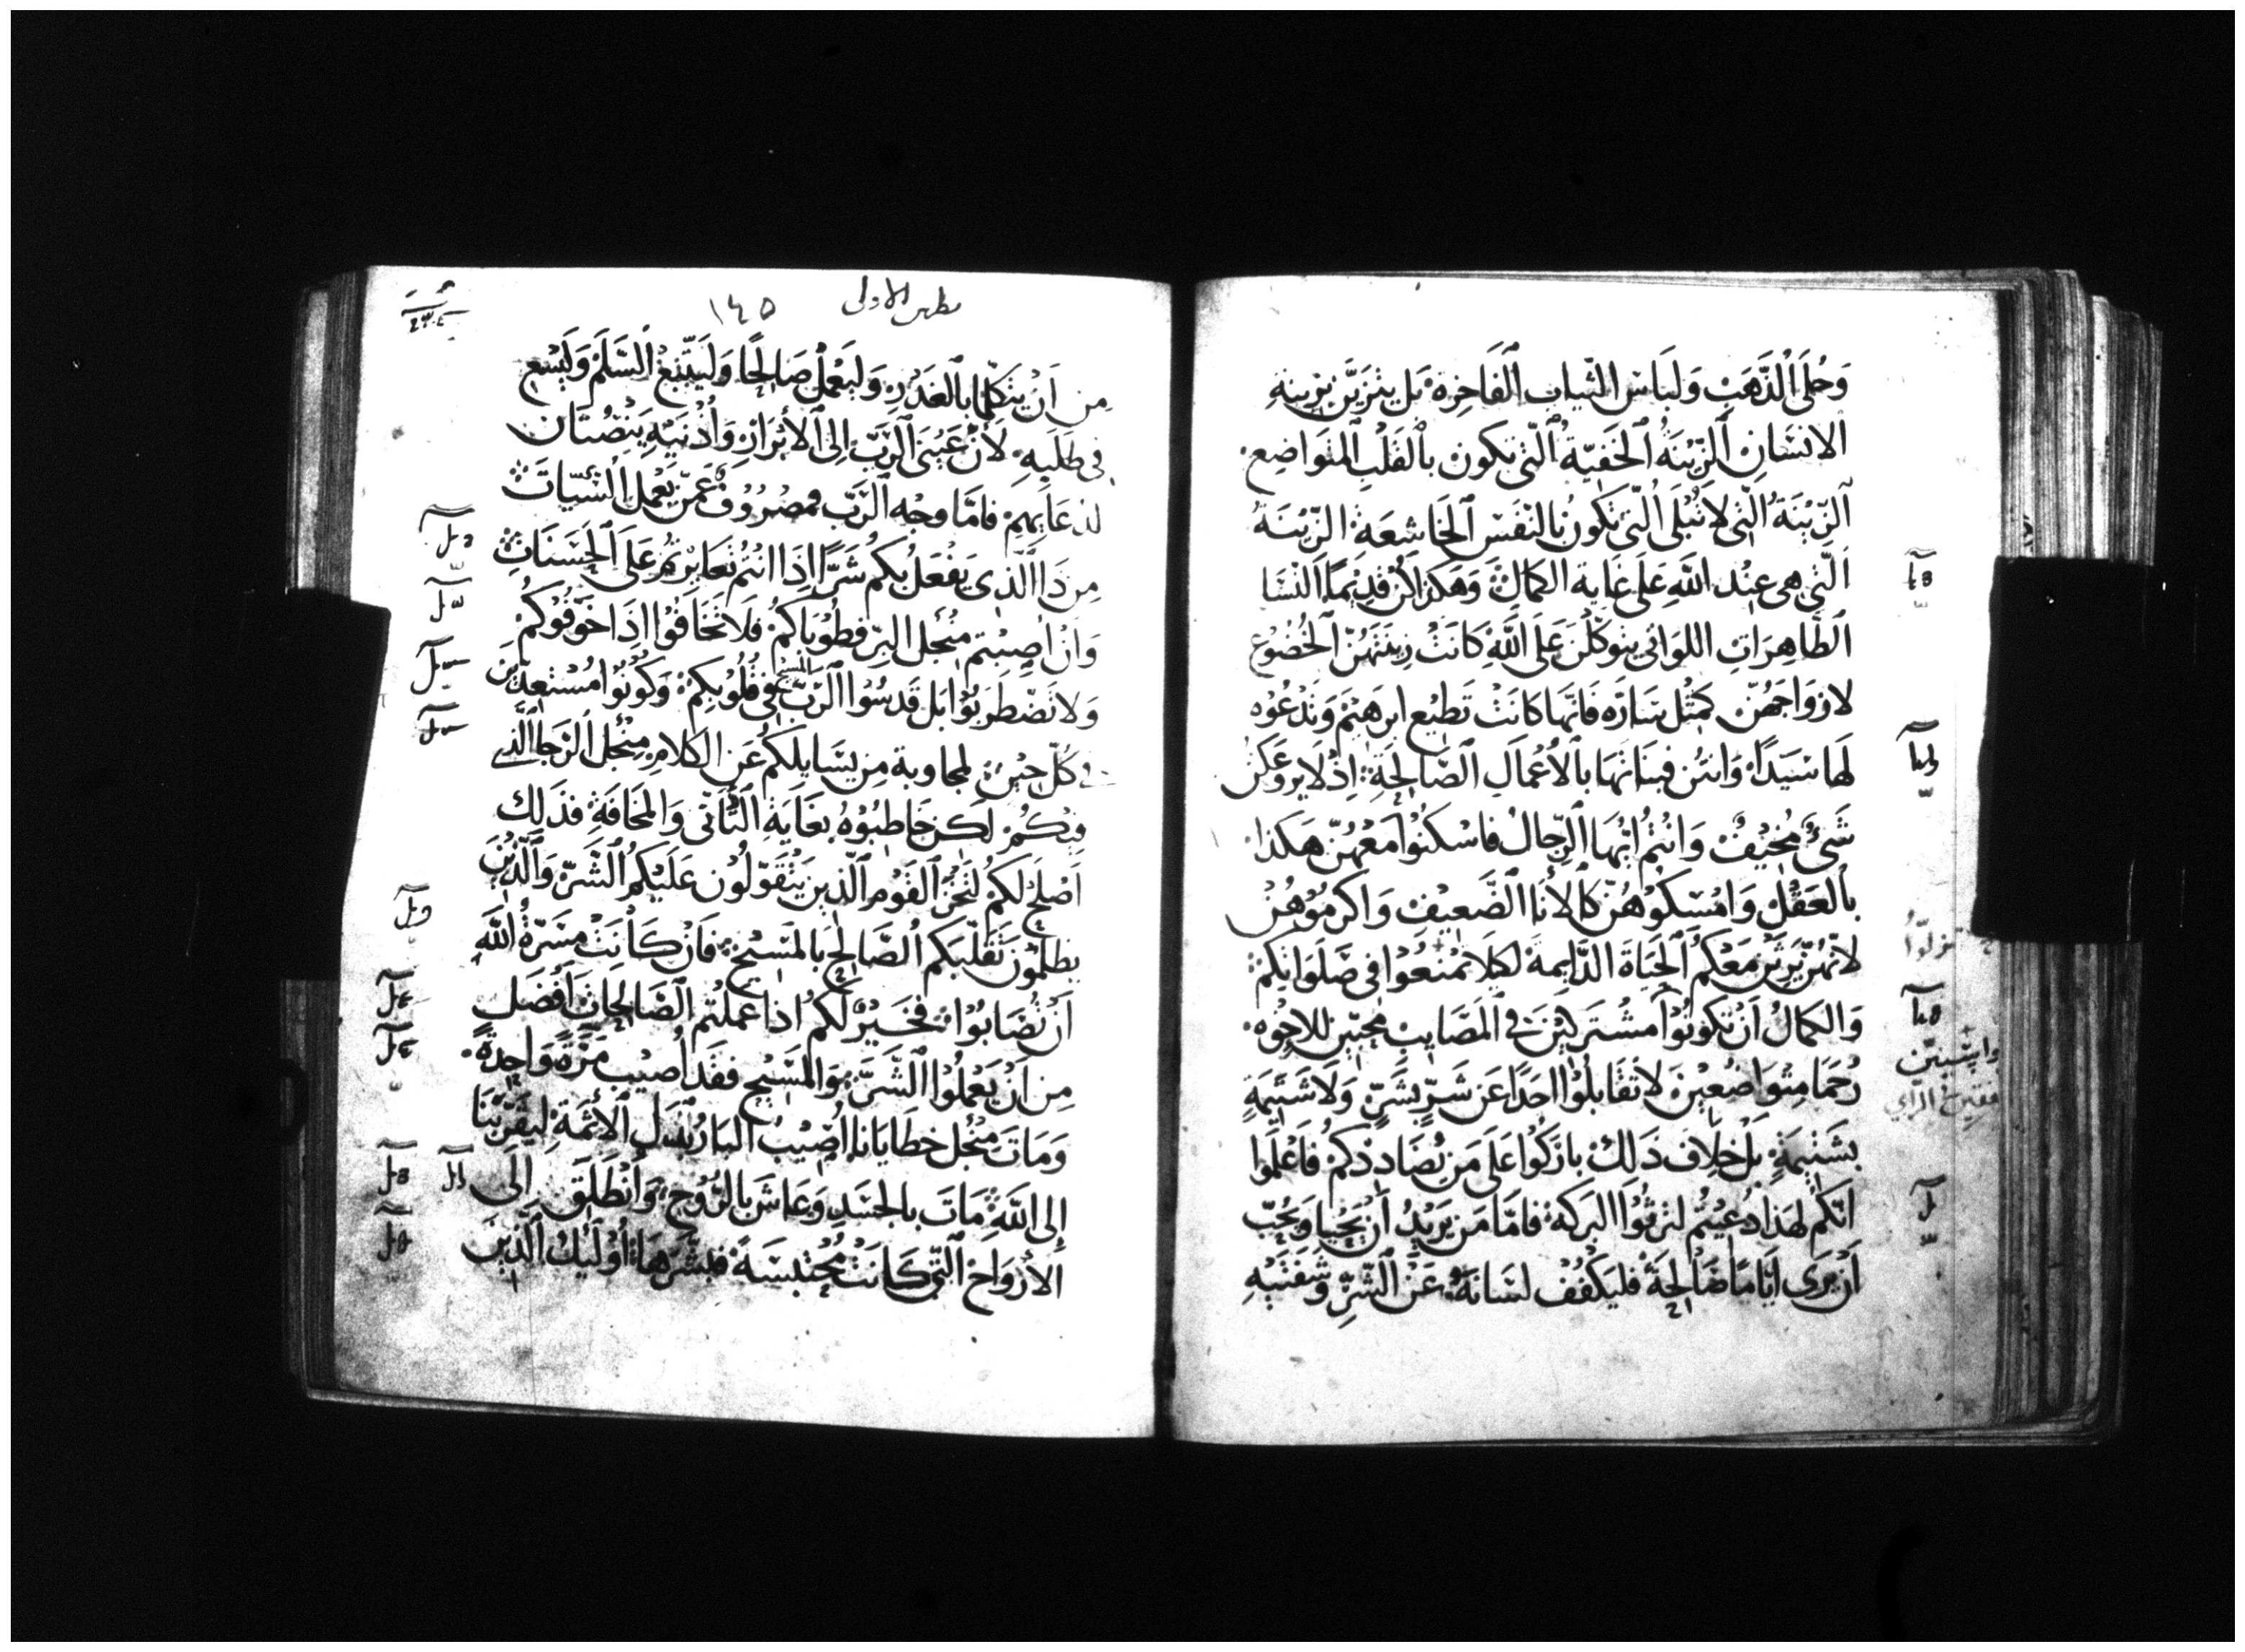 وَحُلَى الذَّهَبِ وَلبَاسَ الثيابِ الفَاخِرة بَل يتزَيَّن بزينةِ
الانسَانِ الزّينَةُ الخَفيّة الّتي تكون بالقلبِ المتواضِع
الزّيْنَةُ التي لا تُبْلَى الّتي تكونُ بالنفسِ الخَاشعَة الزّينَةُ
الّتي هي عنْد اللهِ عَلى غاية الكمالِ وَهكذا كنّ قديمًا النسَا
الطاهِراتِ اللواتي يتوكّلنَ عَلَى اللهِ كانتْ زينتهُنّ الخُضوُع
لازوَاجهُنّ كمثْل سَارَه فانّها كانتْ تَطيع ابرهيْم وَتدْعُوْه
لَها سَيّدًا وَانتن فبناتهَا بالاعْمالِ الصّالِحَةِ اذْ لا يروعَكن
شَيءٌ مُخيْفٌ وَانتُمْ ايّها الرِّجالُ فاسْكنُوا معَهُنّ هكذا
بالعَقْلِ وَامْسكوْهُنّ كالأنَا الضَّعيْف وَاكرمُوْهُنْ
لانّهُنّ يرِثن مَعَكُم الحَيَاةَ الدَّايمة لكيلا تمنعُوْا في صَلوَاتكمْ
وَالكمالُ اَنْ تكونُوا مشتركيْنَ في المَصَايبِ محبّين للاخوه
وابتنيتن
رُحَمَا متواضعِيْنَ لا تقَابلوُا احَدًا عَن شَرٍّ بشَرٍّ وَلا شَتيمَةٍ
بشَتيْمَةٍ بَلْ خلافَ ذَلكْ باركُوا عَلَى مَن يُضَاددكمْ فاعْلَموا
انّكم لهَذا دُعيْتُم لترثُوا البركة فامّا مَن يَريْدُ اَن يَحْيَا وَيحُبّ
اَنْ يرَى ايّامًا صَالحَةً فليَكفُفْ لسَانهُ عَنْ الشّرِّ وَشفتَيْهِ
بطرس الاولى ١٤٥
مِن اَنْ يتكلّما بالغَدْرِ وَليَعْملْ صَالحًا وَليَتّبعْ السَّلَمْ وَليَسْع
في طَلَبِهِ لأنْ عَيْنَي الرَّبِّ الى الأبرَارِ وَأذْنيْهِ ينْصُتَان
لدعَايهِمْ فامَّا وجْه الرَّبّ فمصْرُوفٌ عَمّن يَعْمل السّيّات
مِن ذَا الّذِي يَفعَل بكمُ شَرًّا اذَا انتُم تغَايَرْتُمْ عَلَى الحَسَناتِ
وَانْ اصِبْتم منْجل البِرّ فطوُبَاكمُ فلا تَخَافُوْا اذَا خَوّفُوكُمْ
وَلا تَضْطَربُوْا بَل قَدسُوا الرّبّ المسيح في قُلُوْبِكمْ وَكُونُوا مُسْتعِدّيْنَ
في كُلّ حِيْنٍ لمجاوبة مِن يسَايلكمُ عَن الكَلام منْجل الرّجا الّذي
فيكُمْ لكن خَاطبُوْهُ بغَايَةِ التّأنّي وَالمخَافَةِ فذَلك
اَصْلحُ لكمْ لتَخزَ القَوْم الّذين يَتَقوّلُون عَليْكم الشّرّ وَالّذيْنَ
يظلمُونَ تَقلّبكم الصّالحَ بالمَسيْح فَانْ كانَتْ مَسَرّةُ اللهِ
اَنْ تُصَابُوْا فخَيْرٌ لَكم اذا عملتُم الصّالحَات أفضَل
مِن اَنْ يَعْملوا الشّرّ وَالمَسيْح فقد اُصيْب مَرَّةً وَاحِدَةً
وَمَاتَ منْجل خطَايَانا اُصيْبُ البارُ بَدَل الأثمَة ليُقَرّبنَا
إلى اللهِ مَاتَ بالجسَدِ وَعاشَ بالرّوْحِ وَأنْطَلَق الى
الأرْوَاحْ الّتي كانَتْ مُحْتبسَةً فبشّرهَا أوْلَئكْ الّذيْنَ